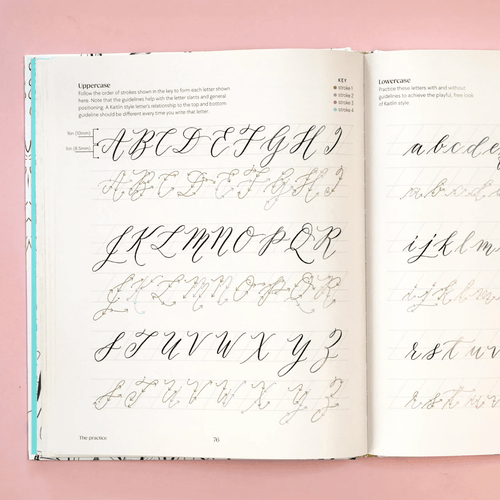 Uppercase
Follow the order of strokes shown in the key to form each letter shown
here. Note that the guidelines help with the letter slants and general
positioning. A Kaitlin style letter's relationship to the top and bottom
guideline should be different every time you write that letter.
KEY
stroke 1
stroke 2
stroke 3
stroke 4
A B C D E F G H I
A B C D E F G H I
J K L M N O P Q R
J K L M N O P Q R
S T U V W X Y Z
S T U V W X Y Z
The practice
76
Lowercase
Practice these letters with and without
guidelines to achieve the playful, free look
of Kaitlin style.
a b c d e
a b c d
i j k l m
i j k l m
r s t u v
r s t u v